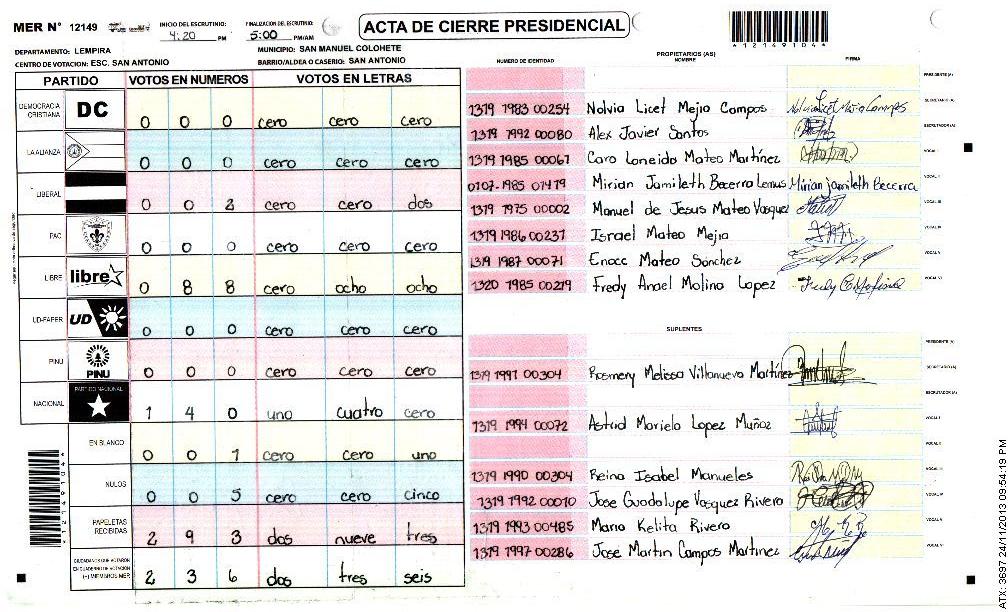 MER N° 12149
INICIO DEL ESCRUTINIO: 4:20 PM
FINALIZACION DEL ESCRUTINIO: 5:00 PM/AM
ACTA DE CIERRE PRESIDENCIAL
*121491044*
DEPARTAMENTO: LEMPIRA
MUNICIPIO: SAN MANUEL COLOHETE
CENTRO DE VOTACION: ESC. SAN ANTONIO
BARRIO/ALDEA O CASERIO: SAN ANTONIO
PARTIDO VOTOS EN NUMEROS VOTOS EN LETRAS
DEMOCRACIA CRISTIANA DC 0 0 0 cero cero cero
LA ALIANZA 0 0 0 cero cero cero
LIBERAL 0 0 2 cero cero dos
PAC 0 0 0 cero cero cero
LIBRE libre 0 8 8 cero ocho ocho
UD-FAPER UD 0 0 0 cero cero cero
PINU PINU 0 0 0 cero cero cero
NACIONAL PARTIDO NACIONAL 1 4 0 uno cuatro cero
EN BLANCO 0 0 1 cero cero uno
NULOS 0 0 5 cero cero cinco
PAPELETAS RECIBIDAS 2 9 3 dos nueve tres
CIUDADANOS QUE VOTARON EN CUADERNO DE VOTACION (+) MIEMBROS MER 2 3 6 dos tres seis
*121491044*
PROPIETARIOS (AS)
NUMERO DE IDENTIDAD NOMBRE FIRMA
PRESIDENTE (A)
1319 1983 00254 Nolvia Licet Mejia Campos SECRETARIO (A)
1319 1992 00080 Alex Javier Santos ESCRUTADOR (A)
1319 1985 00067 Caro Loneida Mateo Martínez VOCAL I
0107-1985 01419 Mirian Jamileth Becerra Lemus Mirian jamileth Becerra VOCAL II
1319 1975 00002 Manuel de Jesus Mateo Vasquez VOCAL III
1319 1986 00237 Israel Mateo Mejia VOCAL IV
1319 1987 00071 Enocc Mateo Sanchez VOCAL V
1320 1985 00219 Fredy Anael Molina Lopez VOCAL VI
SUPLENTES
PRESIDENTE (A)
1319 1991 00304 Rosmery Melissa Villanueva Martínez SECRETARIO (A)
ESCRUTADOR (A)
1319 1994 00072 Astrid Mariela Lopez Muñoz VOCAL I
VOCAL II
1319 1990 00304 Reina Isabel Manueles VOCAL III
1319 1992 00010 Jose Guadalupe Vasquez Rivera VOCAL IV
1319 1993 00485 Maria Kelita Rivera VOCAL V
1319 1997 00286 Jose Martin Campos Martinez VOCAL VI
ATX: 3697 24/11/2013 09:54:19 PM